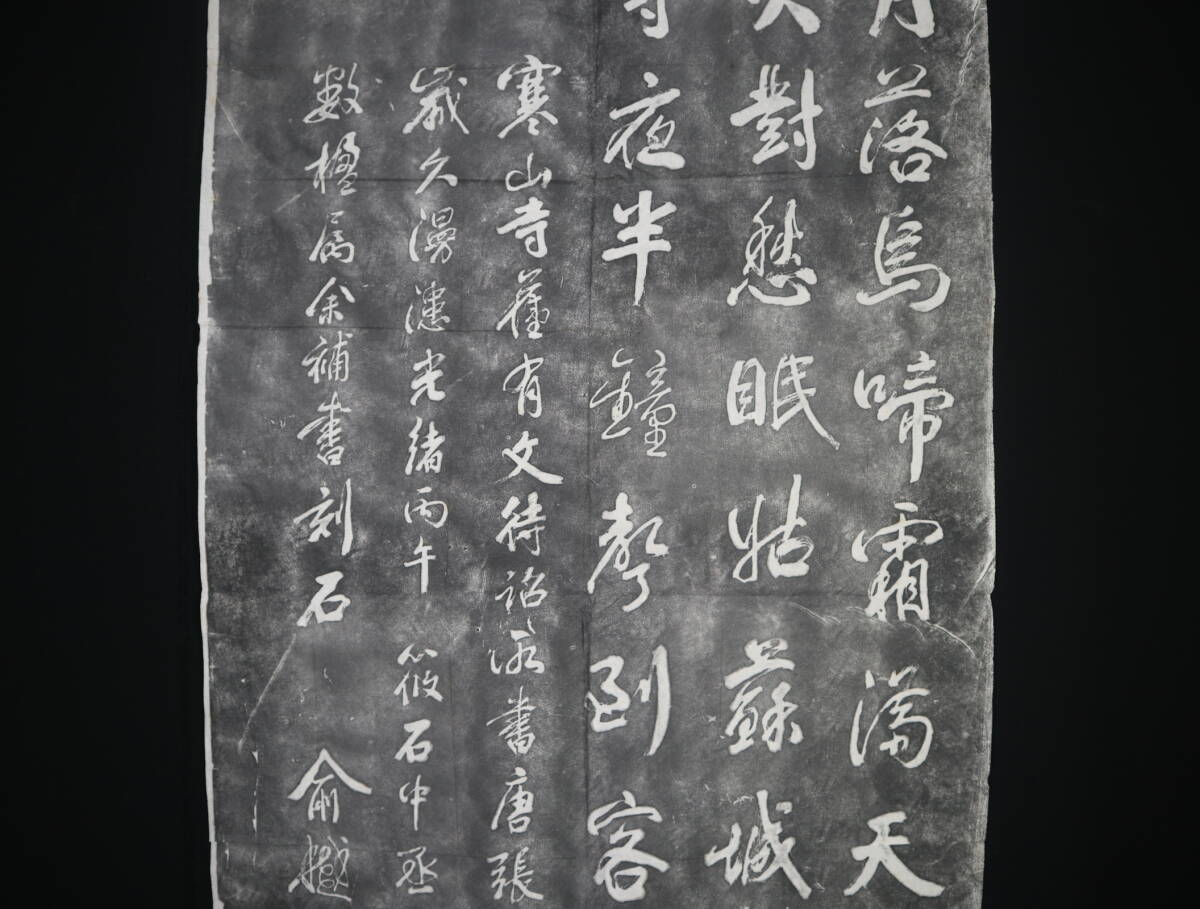 月落烏啼霜滿天
火對愁眠姑蘇城
寺夜半鐘聲到客
寒山寺舊有文待詔所書唐張
歲久漫漶光緒丙午筱石中丞
數楹屬余補書刻石俞樾